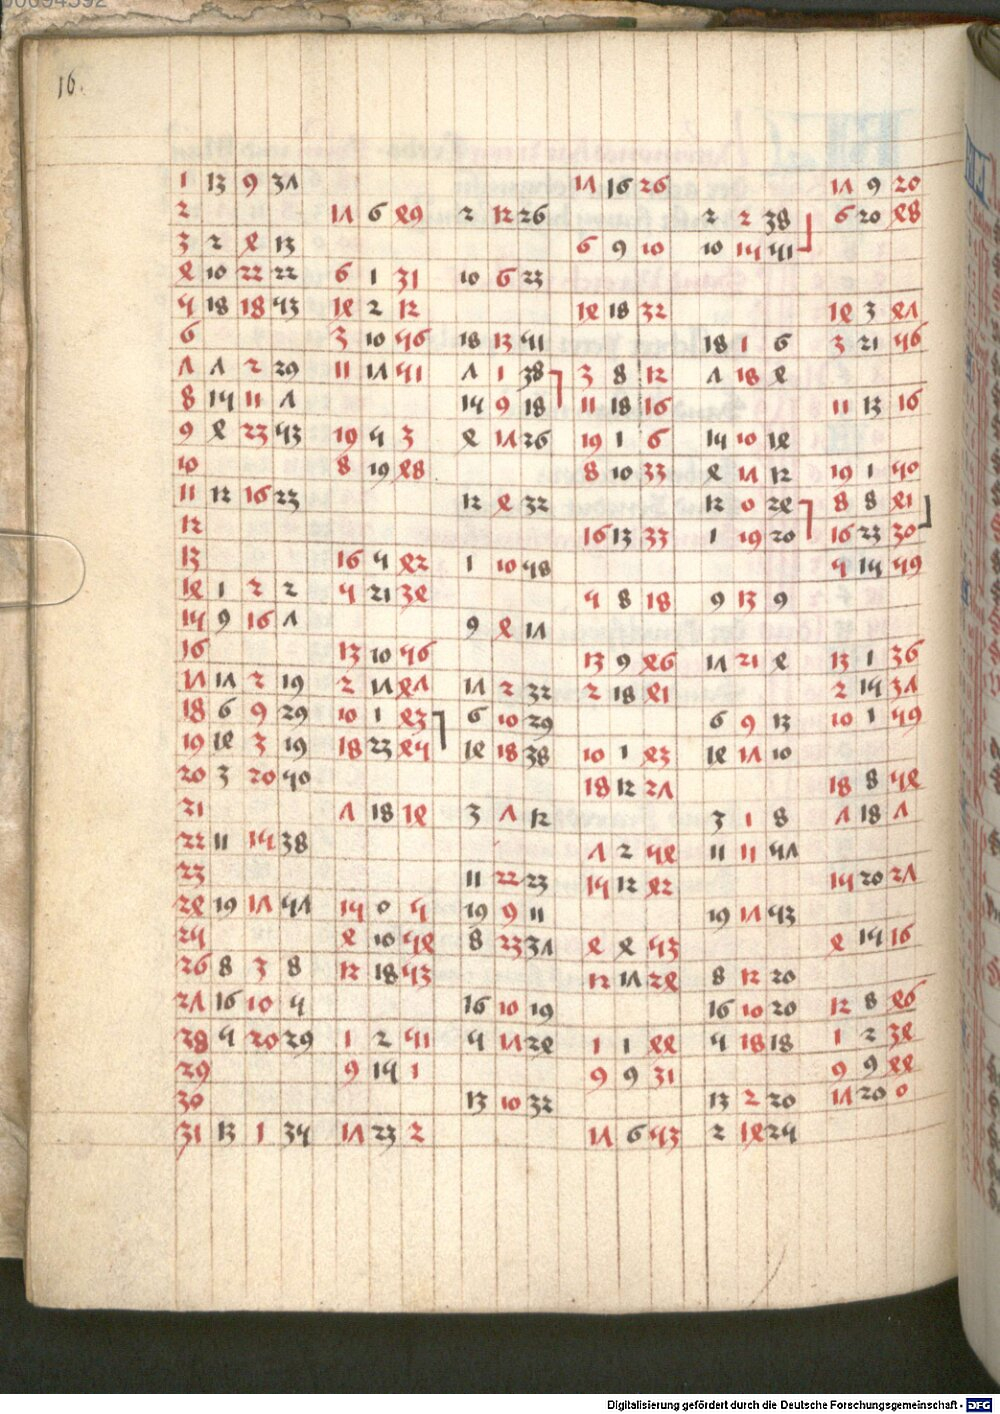 16.
1 13 9 37 17 16 26 17 9 20
2 17 6 49 2 12 26 2 2 38 6 20 48
3 2 4 13 6 9 10 10 15 51
4 10 22 22 6 1 31 10 6 23
5 18 18 53 14 2 12 14 18 32 14 3 47
6 3 10 56 18 13 51 18 1 6 3 21 56
7 7 2 29 11 17 51 7 1 38 3 8 12 7 18 4
8 15 11 7 15 9 18 11 18 16 11 13 16
9 4 23 53 19 5 3 4 17 26 19 1 6 15 10 14
10 8 19 48 8 10 33 4 17 12 19 1 50
11 12 16 23 12 4 32 12 0 24 8 8 41
12 16 13 33 1 19 20 16 23 30
13 16 5 42 1 10 58 5 15 59
14 1 2 2 5 21 34 5 8 18 9 13 9
15 9 16 7 9 4 17
16 13 10 56 13 9 46 17 21 4 13 1 36
17 17 2 19 2 17 47 17 2 32 2 18 41 2 15 37
18 6 9 29 10 1 43 6 10 29 6 9 13 10 1 59
19 14 3 19 18 23 45 14 18 38 10 1 43 14 17 10
20 3 20 50 18 12 27 18 8 54
21 7 18 14 3 7 12 3 1 8 7 18 7
22 11 15 38 7 2 54 11 11 57
23 11 22 23 15 12 42 15 20 27
24 19 17 57 15 0 5 19 9 11 19 17 53
25 4 10 54 8 23 37 4 4 53 4 15 16
26 8 3 8 12 18 53 12 17 24 8 12 20
27 16 10 5 16 10 19 16 10 20 12 8 46
28 5 20 29 1 2 51 5 17 24 1 1 44 5 18 18 1 2 34
29 9 15 1 9 9 31 9 9 44
30 13 10 32 13 2 20 17 20 0
31 13 1 35 17 23 2 17 6 53 2 14 25
Digitalisierung gefördert durch die Deutsche Forschungsgemeinschaft - DFG